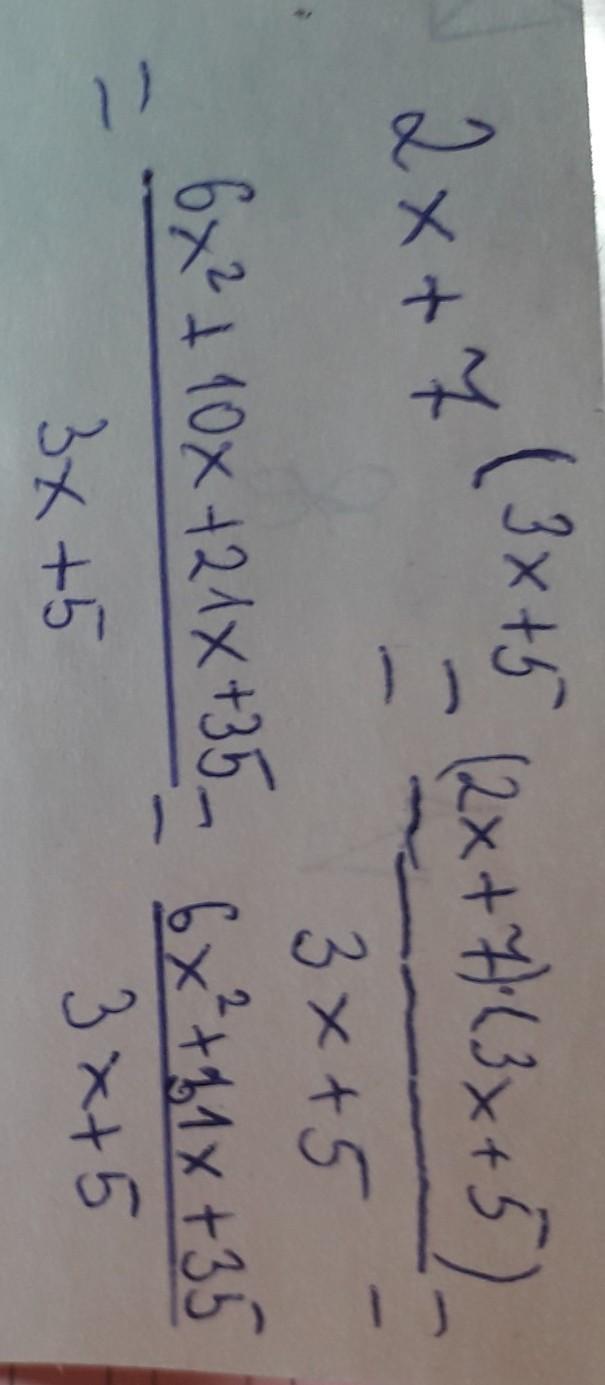 2x+7 (3x+5 = (2x+7)·(3x+5) / 3x+5 =
= 6x²+10x+21x+35 / 3x+5 = 6x²+31x+35 / 3x+5